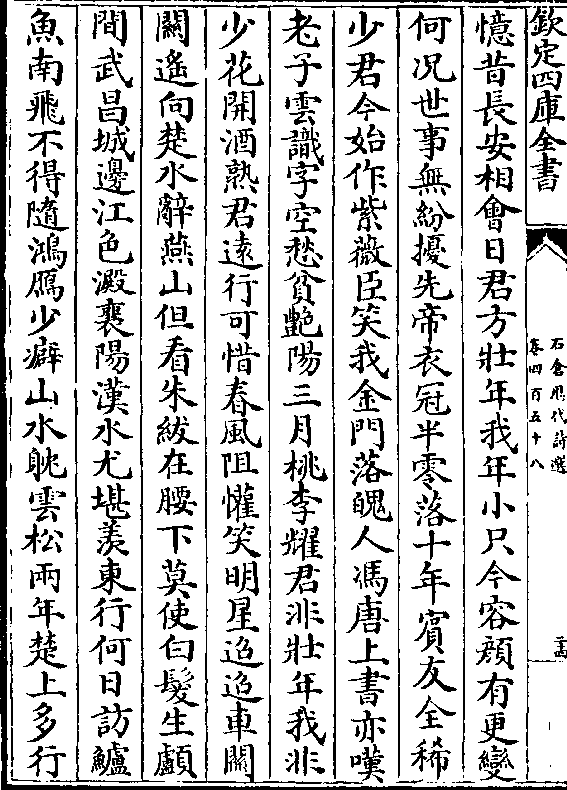 欽定四庫全書
石倉歷代詩選
卷四百五十八
憶昔長安相會日君方壯年我年小只今容顔有更變
何況世事無紛擾先帝衣冠半零落十年賓友全稀
少君今始作紫薇臣笑我金門落魄人馮唐上書亦嘆
老子雲識字空愁貧艶陽三月桃李耀君非壯年我非
少花開酒熟君遠行可惜春風阻懽笑明星迢迢車關
關遙向楚水辭燕山但看朱紱在腰下莫使白髪生顱
間武昌城邊江色澱襄陽漢水尤堪羡東行何日訪鱸
魚南飛不得隨鴻鴈少癖山水躭雲松兩年楚上多行